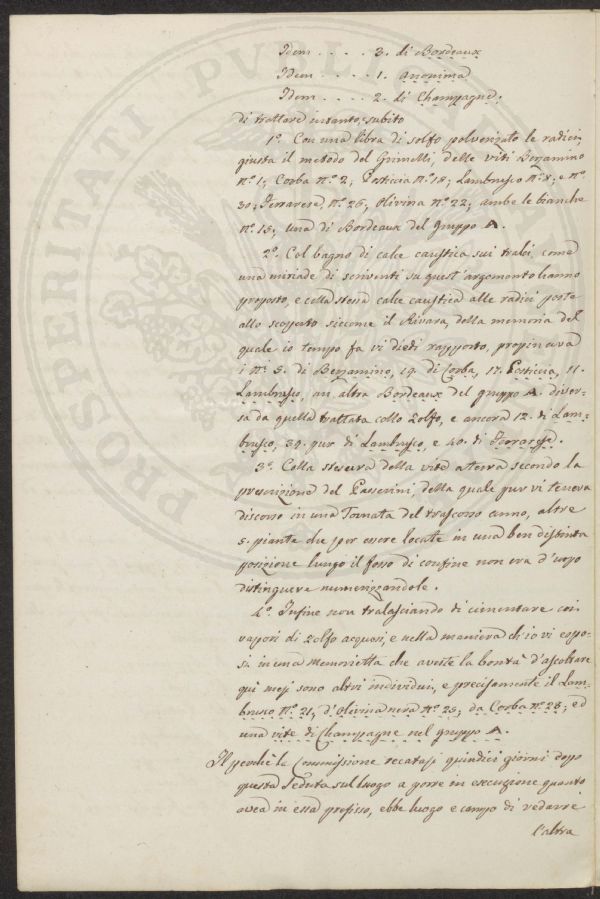 Idem . . . . . 3. di Bordeaux
Idem . . . . . 1. Anonima
Idem . . . . 2. di Champagne;
di trattare intanto, subito
1º. Con una libra di solfo polverizato le radici,
giusta il metodo del Grimelli, delle viti Berzamino
nº. 1; Corba nº. 2; Posticcia nº. 18; Lambrusco nº. 8; e nº.
30; Ferrarese nº. 26, Olivina nº. 22; ambe le bianche
nº. 15; una di Bordeaux del gruppo A.
2º. Col bagno di calce caustica sui tralci, come
una miriade di scriventi su quest'argomento hanno
proposto, e colla stessa calce caustica alle radici poste
allo scoperto siccome il Rivara, della memoria del
quale io tempo fa vi diedi rapporto, proponeva
i nº. 5. di Berzamino, 14. di Corba, 17. Posticcia, 11.
Lambrusco, un altra Bordeaux del gruppo A. diver-
sa da quella trattata collo Zolfo, e ancora 12. di Lam-
brusco, 39. pur di Lambrusco, e 40. di Ferrarese.
3º. Colla stesura della vite a terra secondo la
prescrizione del Passerini, della quale pur vi teneva
discorso in una Tornata del trascorso anno, altre
5. piante che per essere locate in una ben distinta
posizione lungo il fosso di confine non era d'uopo
distinguere numerizzandole.
4º. Infine non tralasciando di cimentare coi
vapori di zolfo acquosi, e nella maniera ch'io vi espo-
si in una memorietta che aveste la bontà d'ascoltare
qui mesi sono altri individui, e precisamente il Lam-
brusco nº. 21, d'Olivina nera nº. 23; da Corba nº. 28; ed
una vite di Champagne nel gruppo A.
Il perchè la Commissione recatasi quindici giorni dopo
questa Seduta sul luogo a porre in esecuzione quanto
avea in essa prefisso, ebbe luogo e campo di vedarre
l'altra
PROSPERITATI PUBLICAE